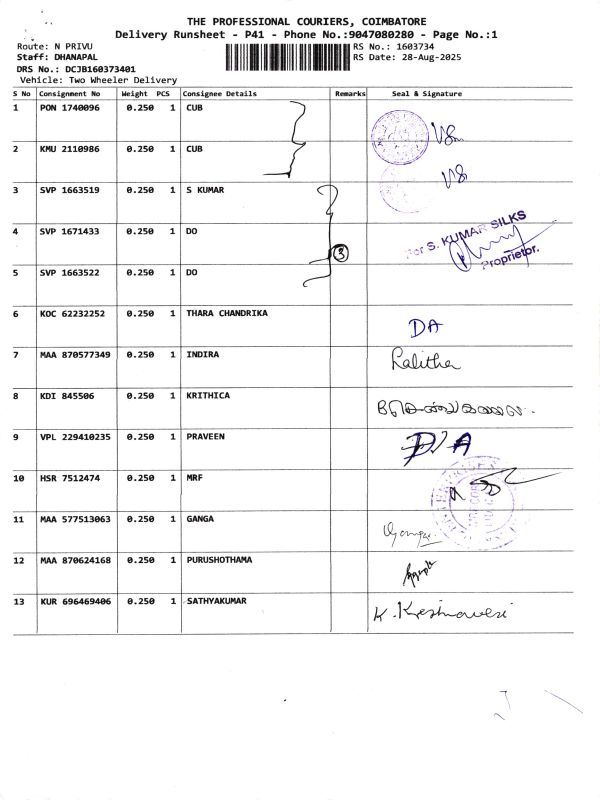 THE PROFESSIONAL COURIERS, COIMBATORE
Delivery Runsheet - P41 - Phone No.:9047080280 - Page No.:1
Route: N PRIVU RS No.: 1603734
Staff: DHANAPAL RS Date: 28-Aug-2025
DRS No.: DCJB160373401
Vehicle: Two Wheeler Delivery
S No Consignment No Weight PCS Consignee Details Remarks Seal & Signature
1 PON 1740096 0.250 1 CUB
2 KMU 2110986 0.250 1 CUB
3 SVP 1663519 0.250 1 S KUMAR
4 SVP 1671433 0.250 1 DO For S. KUMAR SILKS
3
Proprietor.
5 SVP 1663522 0.250 1 DO
6 KOC 62232252 0.250 1 THARA CHANDRIKA DA
7 MAA 870577349 0.250 1 INDIRA Lalitha
8 KDI 845506 0.250 1 KRITHICA
9 VPL 229410235 0.250 1 PRAVEEN D/A
10 HSR 7512474 0.250 1 MRF
11 MAA 577513063 0.250 1 GANGA
12 MAA 870624168 0.250 1 PURUSHOTHAMA
13 KUR 696469406 0.250 1 SATHYAKUMAR K. Kreshnaveri